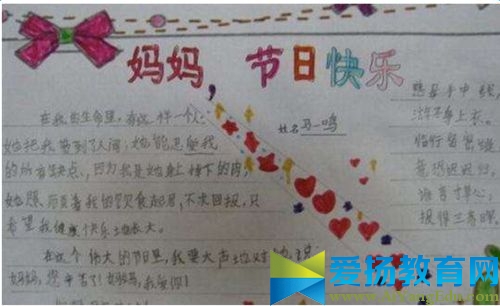 妈妈，节日快乐
在我的生命里，有这样一个人：
她把我带到了人间；她能忍受我
的所有缺点，因为我是她身上掉下的肉，
她照顾着我的饮食起居，不求回报，只
希望我健康快乐地长大。
在这个伟大的节日里，我要大声地对她说：
妈妈，您辛苦了！妈妈，我爱你！
姓名 马一鸣
慈母手中线，
游子身上衣。
临行密密缝，
意恐迟迟归。
谁言寸草心，
报得三春晖
爱扬教育网